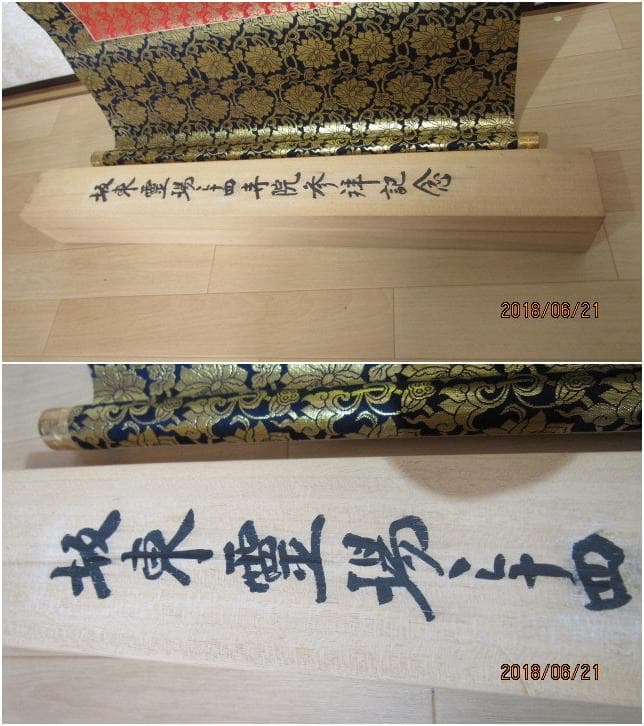 坂東霊場三十四寺院参拝記念
2018/06/21
坂東霊場三十四
2018/06/21